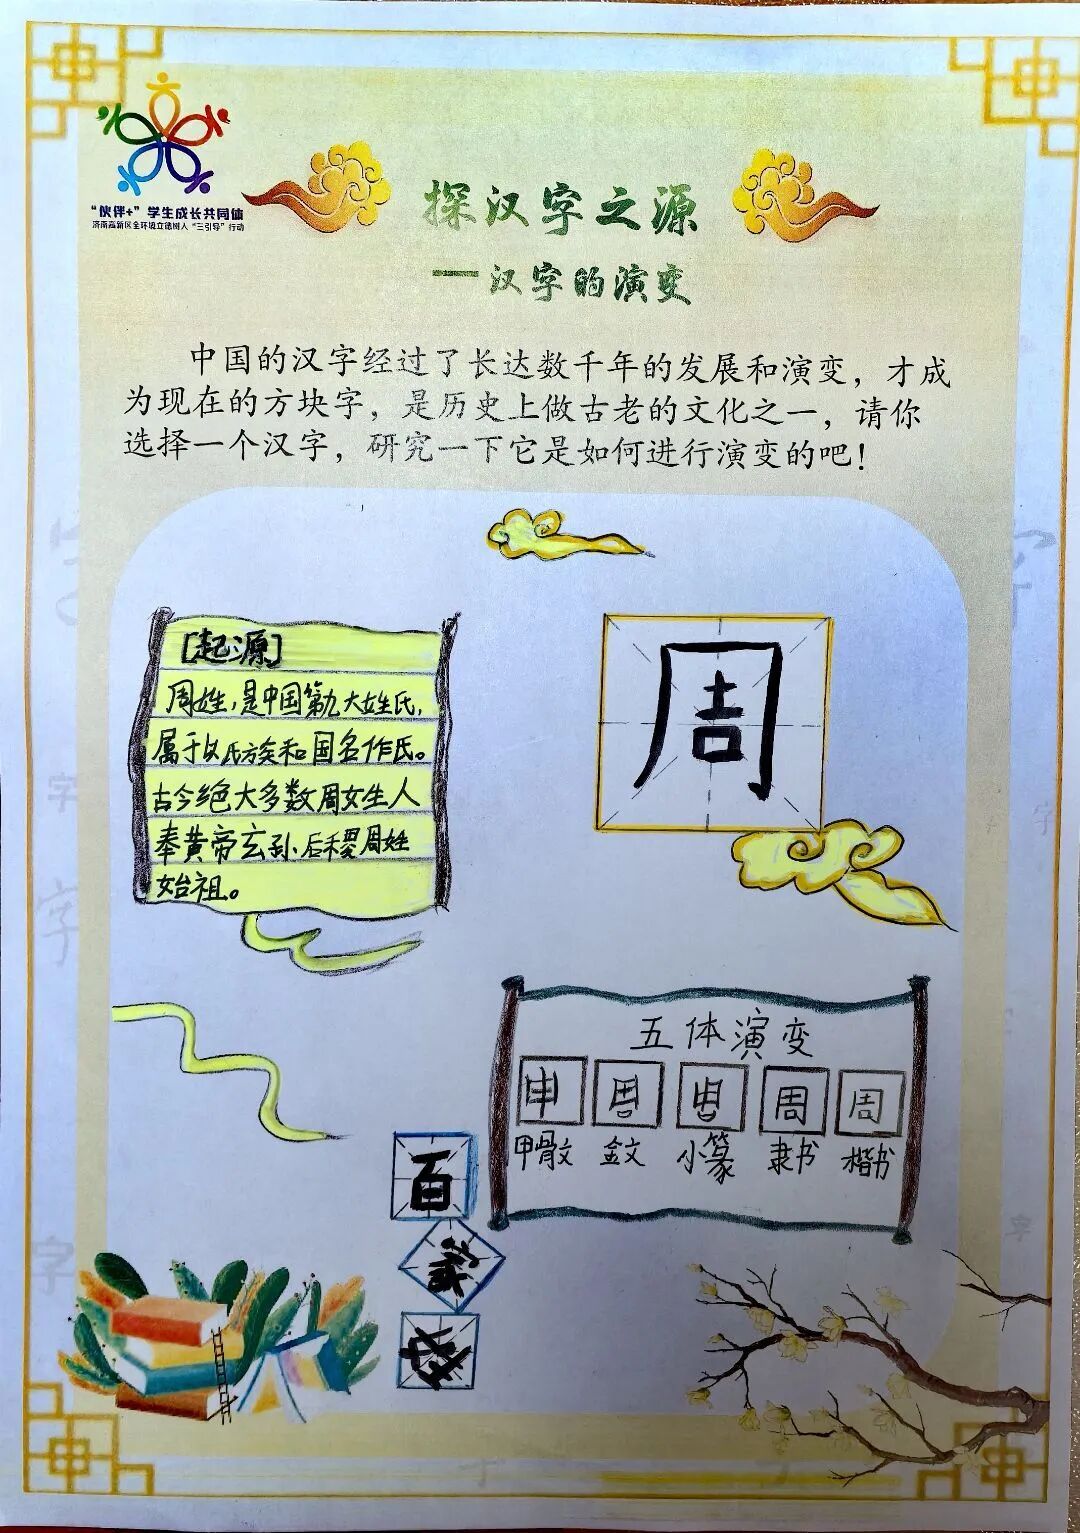 “伙伴+”学生成长共同体
济南高新区全环境立德树人“三引导”行动
探汉字之源
一汉字的演变
中国的汉字经过了长达数千年的发展和演变，才成
为现在的方块字，是历史上做古老的文化之一，请你
选择一个汉字，研究一下它是如何进行演变的吧！
[起源]
周姓，是中国第九大姓氏，
属于以氏族和国名作氏。
古今绝大多数周姓人
奉黄帝玄孙后稷周姓
始祖。
周
五体演变
周 周 周
甲骨文 金文 小篆 隶书 楷书
百
家
姓